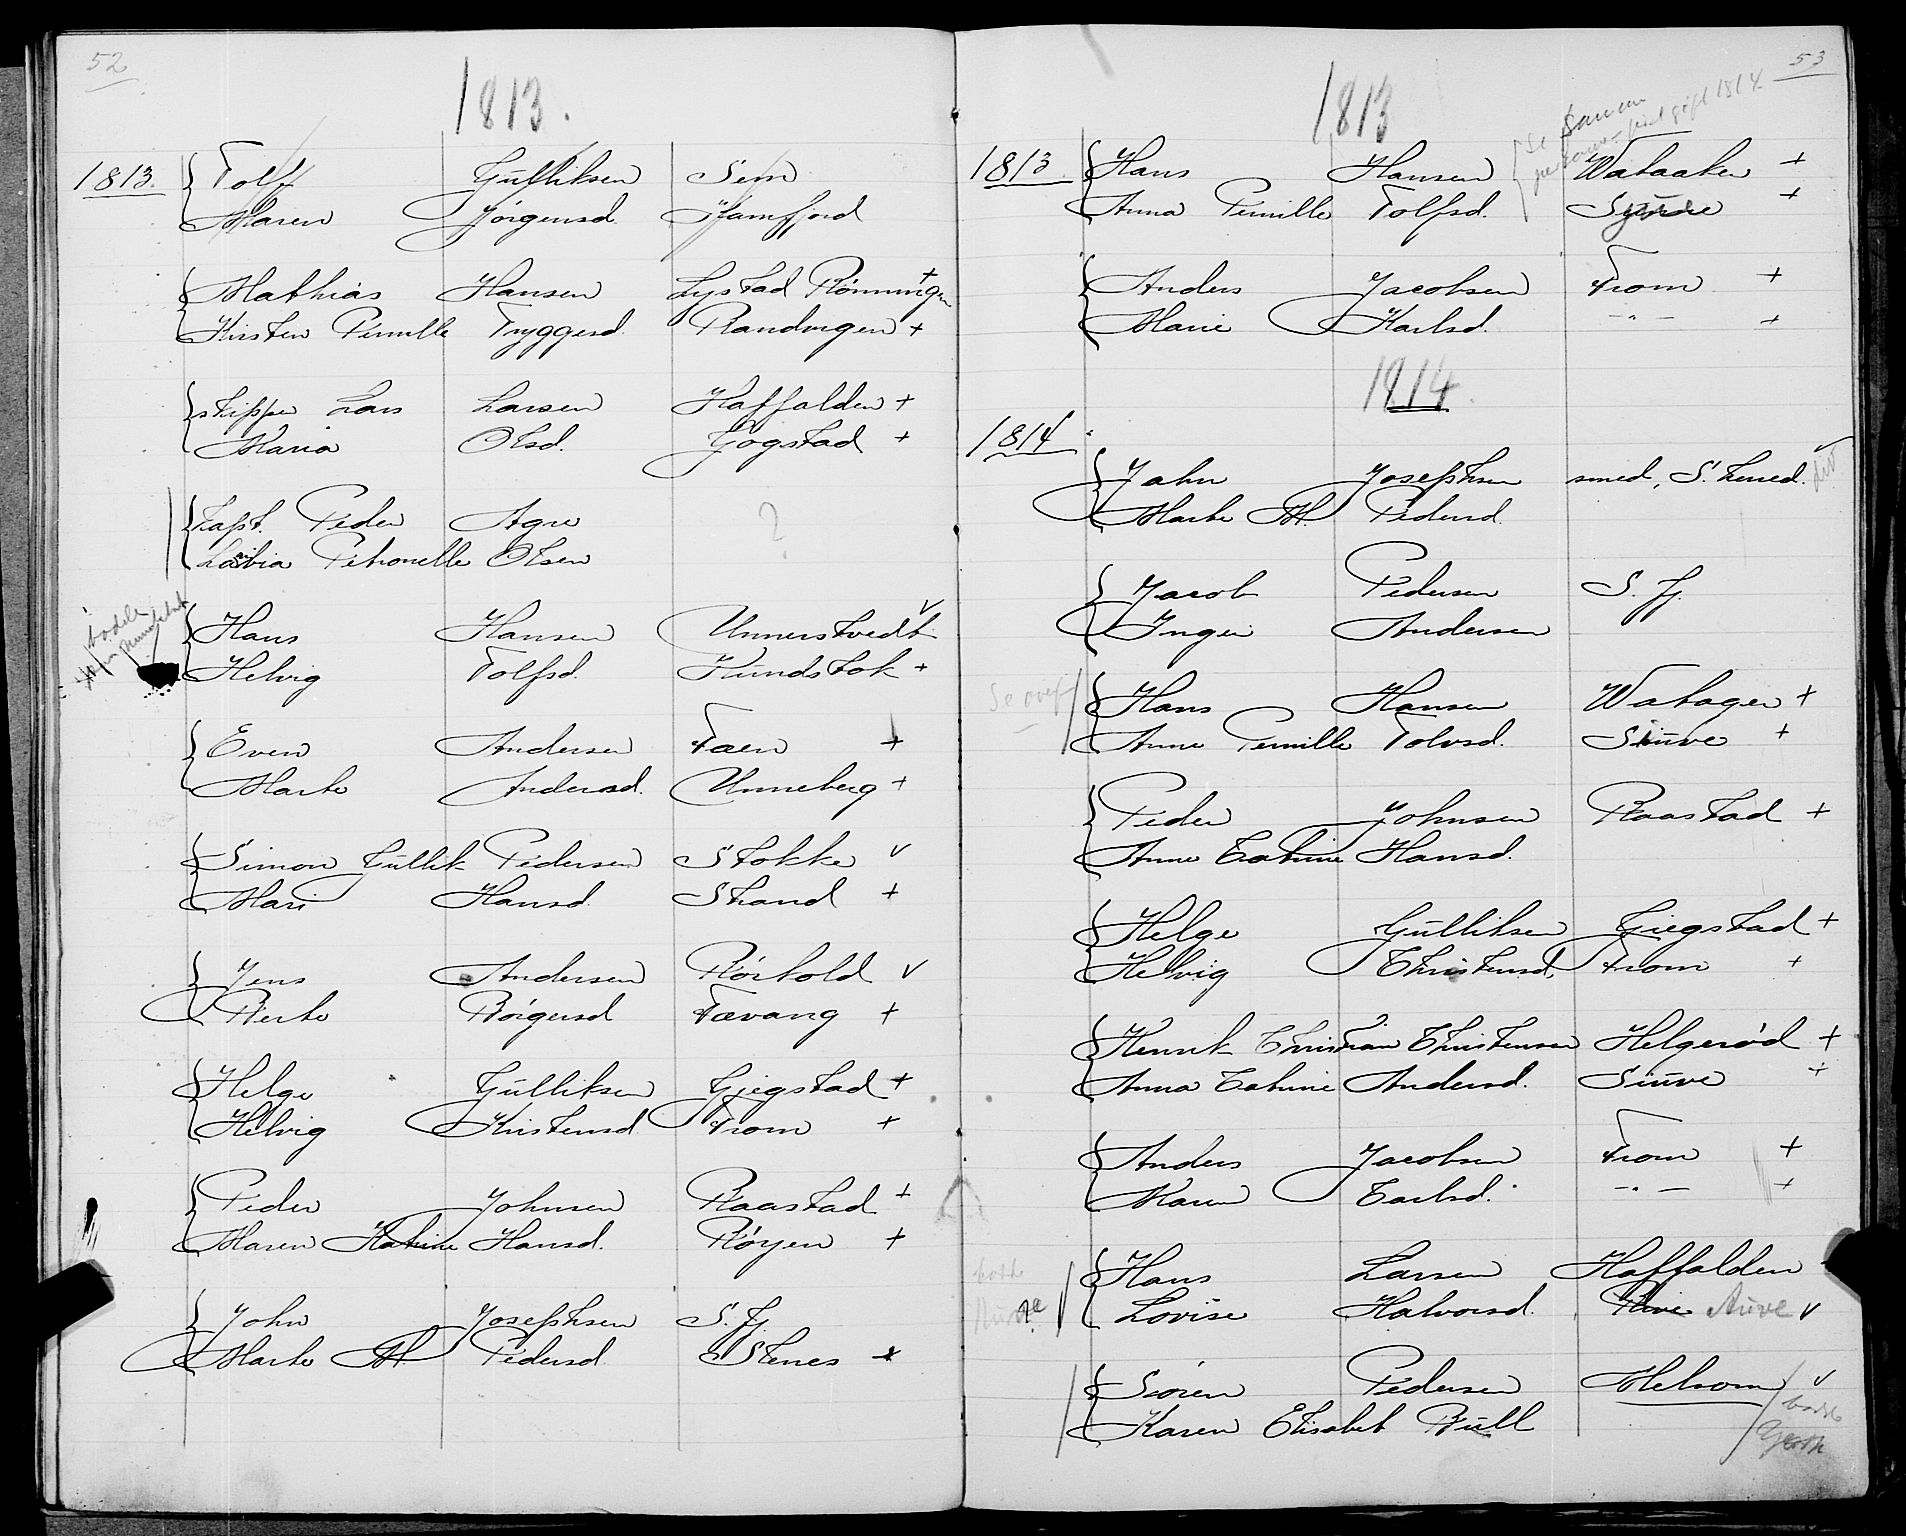 52
1813.
1813. Tolf Gulliksen Sem
Maren Jörgensd. Jamfjord
Mathias Hansen Lystad Rönningen +
Kirsten Pernille Tryggesd. Randvigen +
skipper Lars Larsen Haffalden +
Maria Olsd. Gogstad +
Kapt. Peder Agre ?
Lovia Petronelle Olsen
Hans Hansen Unnerstvedt v
Helvig Tolfsd. Kundstok +
Even Andersen Faen +
Marte Andersd. Unneberg +
Simon Gullik Pedersen Stokke v
Mari Hansd. Strand +
Jens Andersen Rörkold v
Berte Börgersd Fævang +
Helge Gulliksen Gjegstad +
Helvig Kristensd From +
Peder Johnsen Raastad +
Maren Katrine Hansd. Röyen +
John Josephsen S. fj.
Marte M Pedersd Stenes +
53
1813
Se samme
gift 1814.
1813 Hans Hansen Wataaker +
Anna Pernille Tolfsd. +
Anders Jacobsen From +
Marie Karlsd. - " - +
1814.
1814
John Josephsen smed, S.
Marte M Pedersd.
Jacob Pedersen S. fj.
Inger Andersen
Se over
Hans Hansen Watager +
Anne Pernille Tolvsd. Siuve +
Peder Johnsen Raastad +
Anne Catrine Hansd.
Helge Gulliksen Giegstad +
Helvig Christensd. From +
Henrik Christian Christensen Helgeröd +
Anna Catrine Andersd. Siuve +
Anders Jacobsen From +
Maren Carlsd. - " - +
Hans Larsen Haffalden
Lovise Halvorsd. Auve v
Sören Pedersen Melsom v
Karen Elisabet Bull